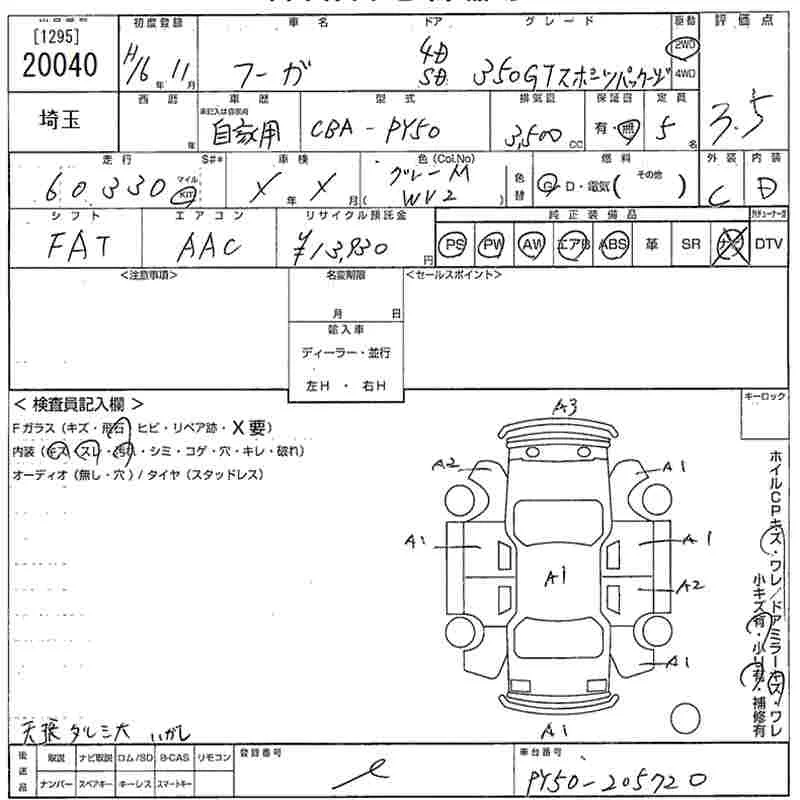 [1295]
初度登録 車名 ドア グレード 駆動 評価点
20040 H16年11月 フーガ 4D SD 350GTスポーツパッケージ 2WD 4WD
埼玉 西暦 年 車歴 未記入は自家用 自家用 型式 CBA-PY50 排気量 3,500cc 保証書 有・無 定員 5名 3.5
走行 S#* 車検 色(Col.No) 色替 燃料 外装 内装
60330 マイル KM X年X月 グレーM ( WV2 ) G・D・電気( その他 ) C D
シフト エアコン リサイクル預託金 純正装備品
FAT AAC ¥13,930円 PS PW AW エアB ABS 革 SR ナビ DTV
<注意事項> 名変期限 <セールスポイント>
月 日
輸入車
ディーラー・並行
左H ・ 右H
< 検査員記入欄 > キーロック
Fガラス (キズ・飛石 ヒビ・リペア跡・X要)
内装 (キズ・スレ・汚れ・シミ・コゲ・穴・キレ・破れ)
オーディオ (無し・穴) / タイヤ (スタッドレス)
A3
A2 A1
A1 A1
A1
A2
A1
A1
ホイルCPキズ・ワレ/ドアミラーキズ・ワレ
小キズ有・小U有・補修有
天張タルミ大 ハガレ
後送品 取説 ナビ取説 ロム/SD B-CAS リモコン 登録番号 車台番号
ナンバー スペアキー キーレス スマートキー PY50-205720